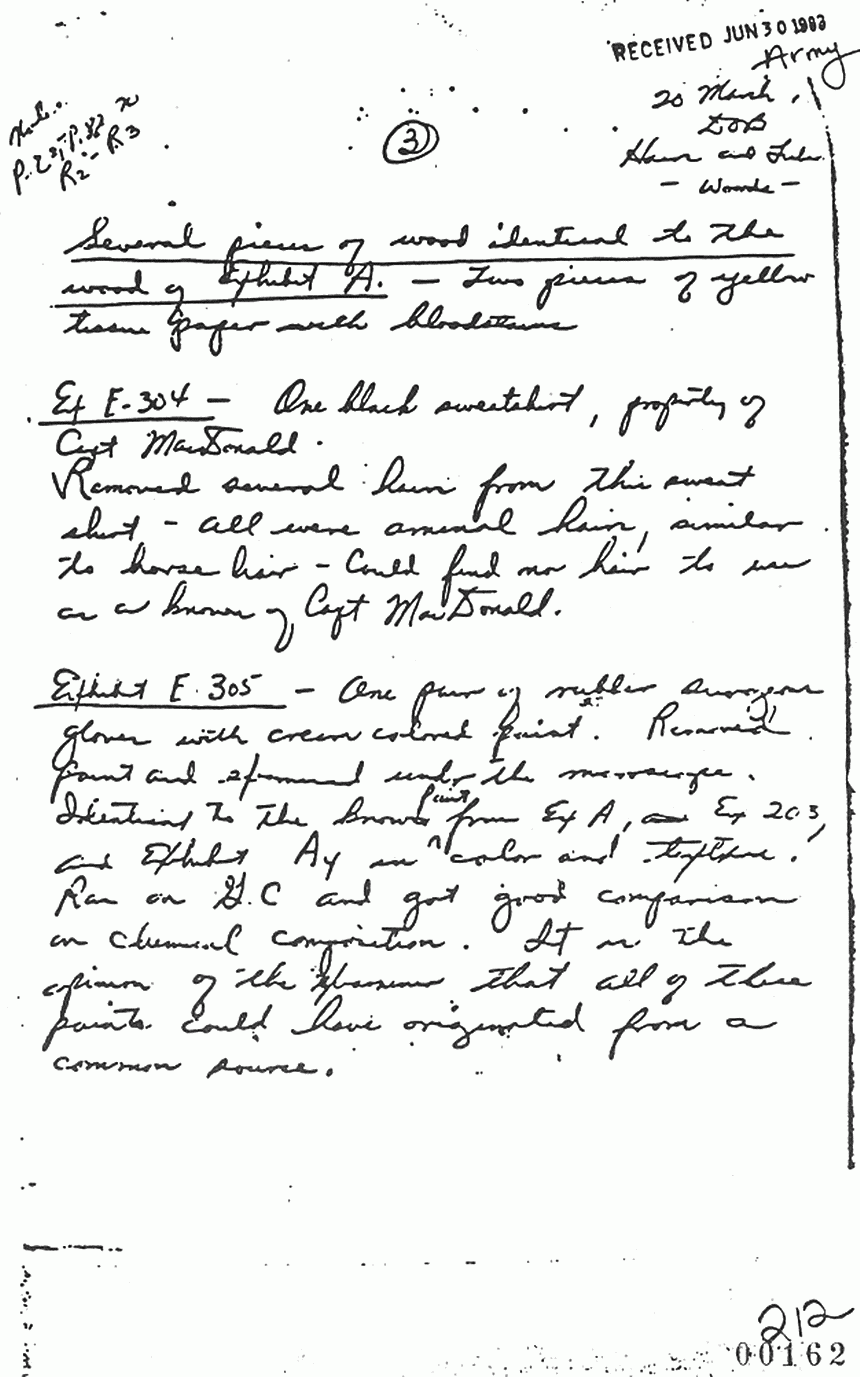 RECEIVED JUN 30 1983
Army
20 March
DOB
Hair and
- Woods -
P. R3
R2 -
3
Several pieces of wood identical to the
wood of Exhibit A. - Two pieces of yellow
tissue paper with bloodstains
Ex E-304 - One black sweatshirt, property of
Capt MacDonald.
Removed several hair from this sweat
shirt - all were animal hair, similar
to horse hair - Could find no hair to use
as a known of Capt MacDonald.
Exhibit E-305 - One pair of rubber surgeons
gloves with cream colored paint. Removed
paint and examined under the microscope.
Identical to the known paint from Ex A, Ex 203,
and Exhibit A4 in color and texture.
Ran on G.C and got good comparison
on chemical composition. It is the
opinion of the examiner that all of these
paints could have originated from a
common source.
212
00162